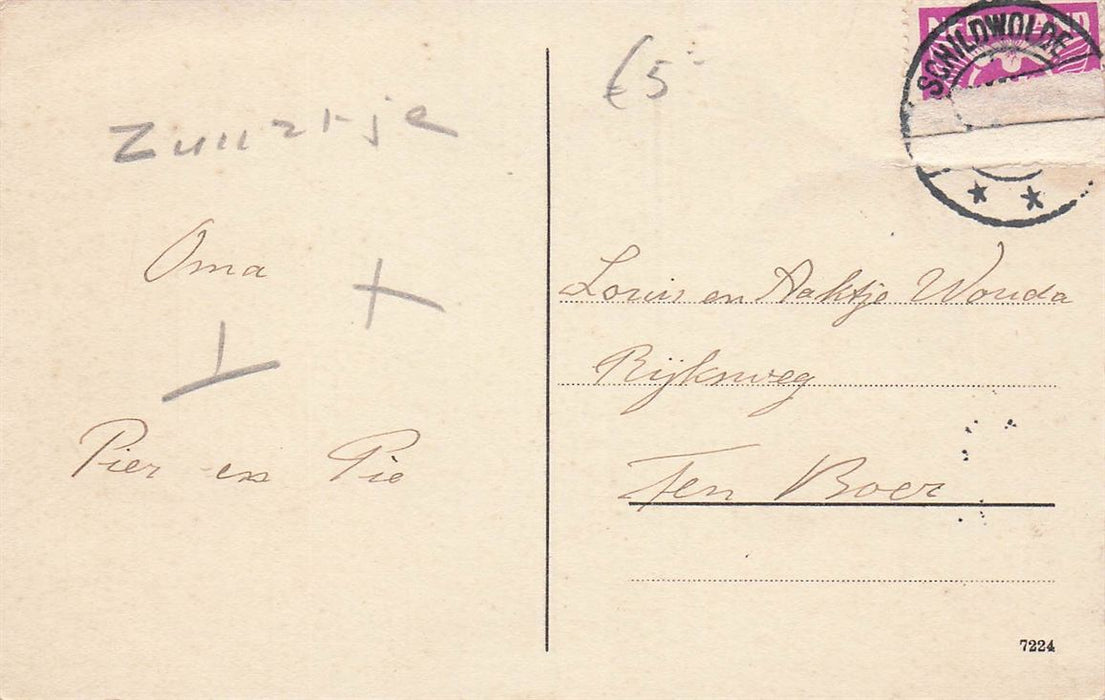 NEDERLAND
SCHILDWOLDE
€5-
Oma
Pier en Pie
Louis en Aaktje Wouda
Rijksweg
Ten Boer
7224